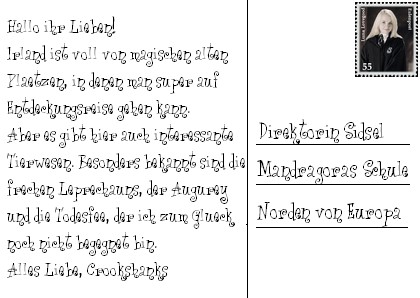 Hallo ihr Lieben!
Irland ist voll von magischen alten
Plaetzen, in denen man super auf
Entdeckungsreise gehen kann.
Aber es gibt hier auch interessante
Tierwesen. Besonders bekannt sind die
frechen Leprechauns, der Augurey
und die Todesfee, der ich zum Glueck
noch nicht begegnet bin.
Alles Liebe, Crookshanks
55
Direktorin Sidsel
Mandragoras Schule
Norden von Europa